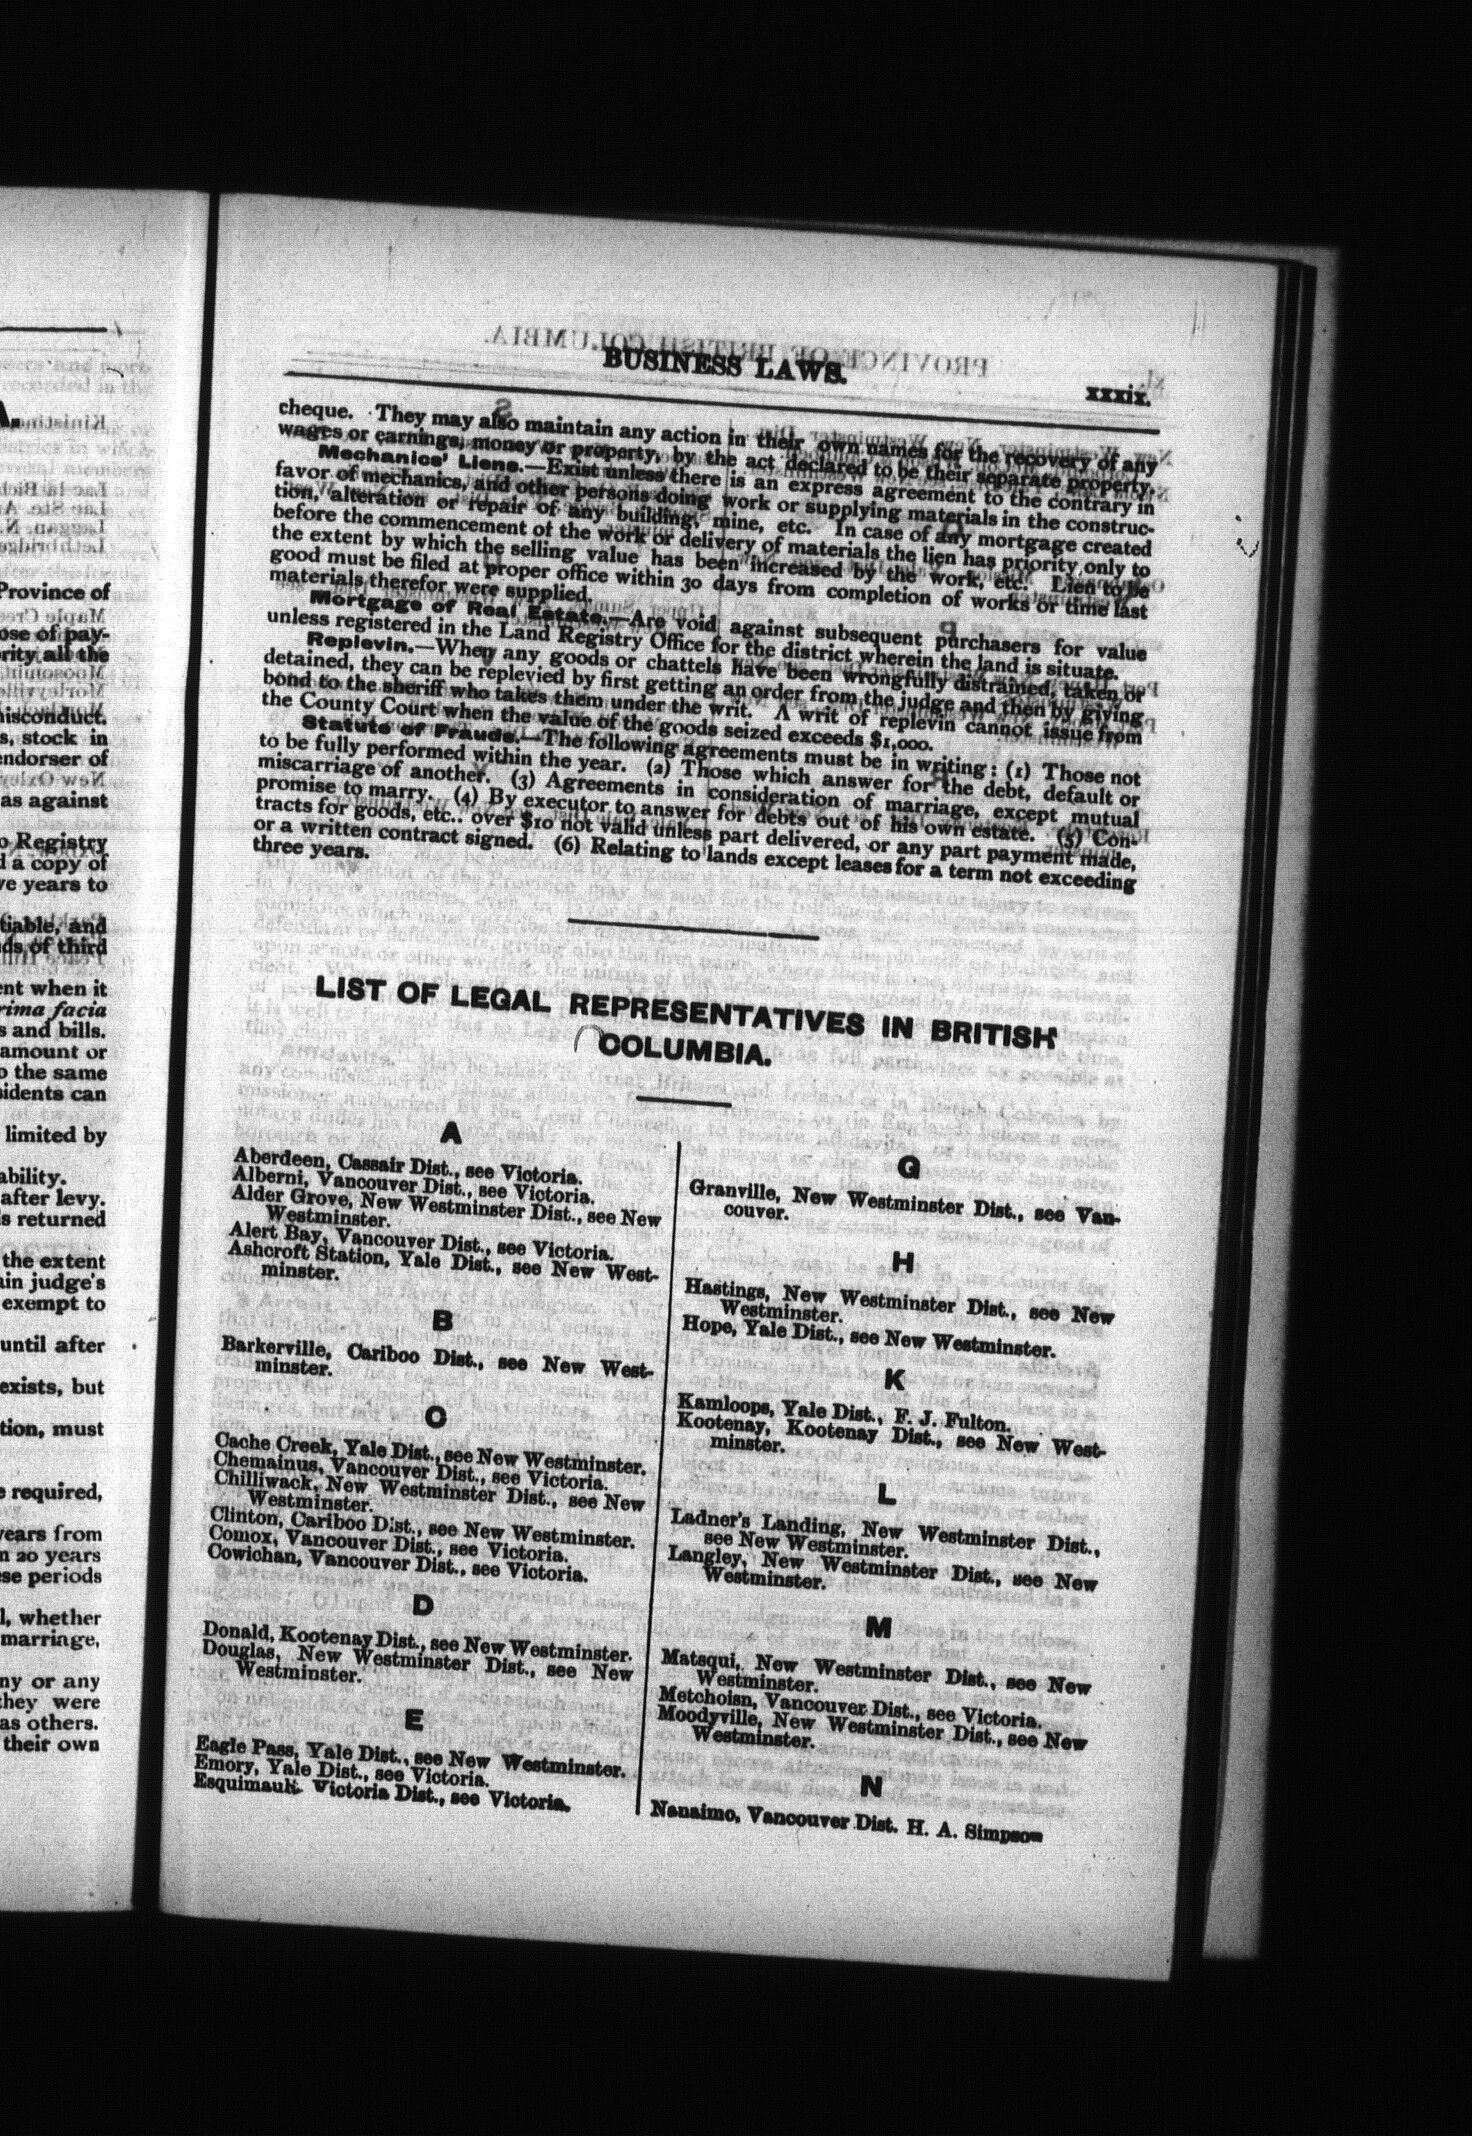 BUSINESS LAWS.
xxxix.
cheque. They may also maintain any action in their own names for the recovery of any
wages or earnings, money or property, by the act declared to be their separate property.
Mechanics' Liens.—Exist unless there is an express agreement to the contrary in
favor of mechanics, and other persons doing work or supplying materials in the construc-
tion, alteration or repair of any building, mine, etc. In case of any mortgage created
before the commencement of the work or delivery of materials the lien has priority only to
the extent by which the selling value has been increased by the work, etc. Lien to be
good must be filed at proper office within 30 days from completion of works or time last
materials therefor were supplied.
Mortgage of Real Estate.—Are void against subsequent purchasers for value
unless registered in the Land Registry Office for the district wherein the land is situate.
Replevin.—When any goods or chattels have been wrongfully distrained, taken or
detained, they can be replevied by first getting an order from the judge and then by giving
bond to the sheriff who takes them under the writ. A writ of replevin cannot issue from
the County Court when the value of the goods seized exceeds $1,000.
Statute of Frauds.—The following agreements must be in writing: (1) Those not
to be fully performed within the year. (2) Those which answer for the debt, default or
miscarriage of another. (3) Agreements in consideration of marriage, except mutual
promise to marry. (4) By executor to answer for debts out of his own estate. (5) Con-
tracts for goods, etc.. over $10 not valid unless part delivered, or any part payment made,
or a written contract signed. (6) Relating to lands except leases for a term not exceeding
three years.
LIST OF LEGAL REPRESENTATIVES IN BRITISH
COLUMBIA.
A
Aberdeen, Cassair Dist., see Victoria.
Alberni, Vancouver Dist., see Victoria.
Alder Grove, New Westminster Dist., see New
Westminster.
Alert Bay, Vancouver Dist., see Victoria.
Ashcroft Station, Yale Dist., see New West-
minster.
B
Barkerville, Cariboo Dist., see New West-
minster.
C
Cache Creek, Yale Dist., see New Westminster.
Chemainus, Vancouver Dist., see Victoria.
Chilliwack, New Westminster Dist., see New
Westminster.
Clinton, Cariboo Dist., see New Westminster.
Comox, Vancouver Dist., see Victoria.
Cowichan, Vancouver Dist., see Victoria.
D
Donald, Kootenay Dist., see New Westminster.
Douglas, New Westminster Dist., see New
Westminster.
E
Eagle Pass, Yale Dist., see New Westminster.
Emory, Yale Dist., see Victoria.
Esquimault. Victoria Dist., see Victoria.
G
Granville, New Westminster Dist., see Van-
couver.
H
Hastings, New Westminster Dist., see New
Westminster.
Hope, Yale Dist., see New Westminster.
K
Kamloops, Yale Dist., F. J. Fulton.
Kootenay, Kootenay Dist., see New West-
minster.
L
Ladner's Landing, New Westminster Dist.,
see New Westminster.
Langley, New Westminster Dist., see New
Westminster.
M
Matsqui, New Westminster Dist., see New
Westminster.
Metchoisn, Vancouver Dist., see Victoria.
Moodyville, New Westminster Dist., see New
Westminster.
N
Nanaimo, Vancouver Dist. H. A. Simpson
Province of
ose of pay-
ority all the
misconduct.
s, stock in
endorser of
as against
o Registry
d a copy of
ve years to
tiable, and
ds of third
ent when it
rima facia
s and bills.
amount or
o the same
sidents can
limited by
ability.
after levy.
is returned
the extent
ain judge's
exempt to
until after
exists, but
tion, must
e required,
years from
n 20 years
ese periods
l, whether
marriage,
ny or any
they were
as others.
their own